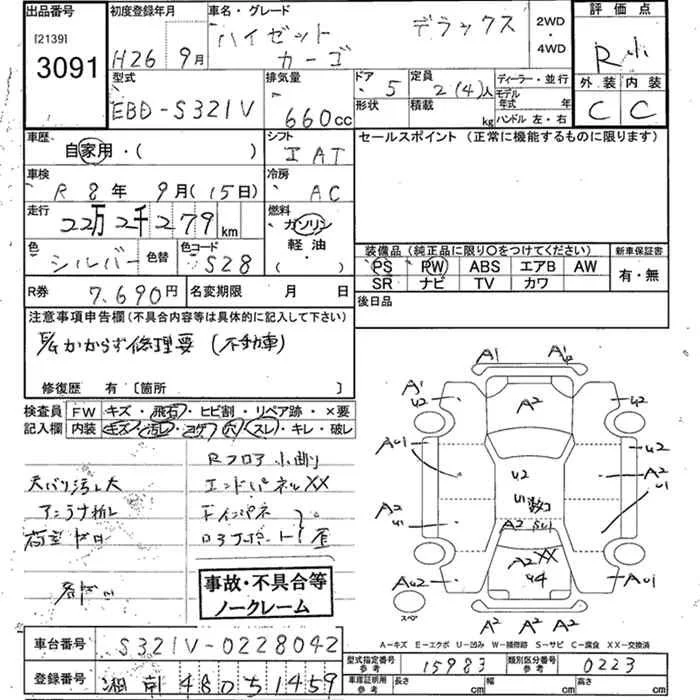 出品番号
[2139]
3091
初度登録年月
H26 9月
車名・グレード
ハイゼット
カーゴ
デラックス
2WD
・
4WD
評価点
外装 内装
C C
型式
EBD-S321V
排気量
660cc
ドア
5
定員
2(4)人
形状
積載
kg
ディーラー・並行
モデル
年式 年
ハンドル 左・右
車歴
自家用・( )
シフト
I AT
車検
R 8年 9月(15日)
冷房
AC
走行
22万2千279km
燃料
ガソリン
軽油
( )
色
シルバー
色替
色コード
S28
セールスポイント(正常に機能するものに限ります)
装備品(純正品に限り〇をつけてください)
PS PW ABS エアB AW
SR ナビ TV カワ
新車保証書
有・無
R券
7,690円
名変期限 月 日
後日品
注意事項申告欄(不具合内容等は具体的に記入して下さい)
E/gかからず修理要(不動車)
修復歴 有〔箇所 〕
検査員
記入欄
FW キズ・飛石・ヒビ割・リペア跡・×要
内装 キズ・汚レ・コゲ・穴・スレ・キレ・破レ
Rフロア小曲り
天バリ汚レ大
エンドパネルXX
アンコ
Fインパネ
ロアサポート
歪
荷室
事故・不具合等
ノークレーム
A1 A1
A1
U2
A2
U2
AU1
U2
U1
U2
A2
U1
A2
U1
A2 SU1
A2 XX
U4
AU2
AU1
スペア
A2 A2 A2
A-キズ E-エクボ U-凹み W-補修跡 S-サビ C-腐食 XX-交換済
車台番号
S321V-0228042
登録番号
湘南 480 5 1459
型式指定番号
参考
15983
類別区分番号
参考
0223
車庫証明用
参考
長さ
cm
幅
cm
高さ
cm